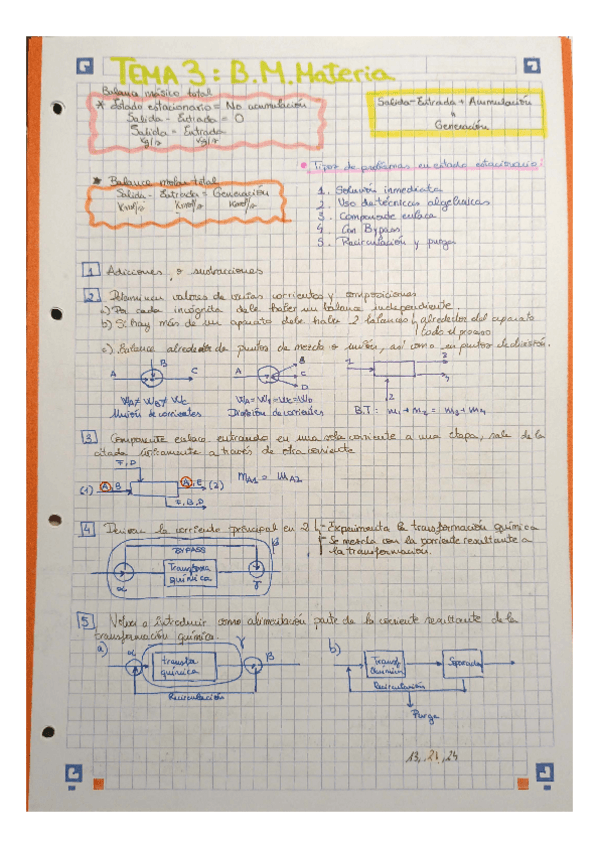 TEMA 3: B.M. Materia
Balance másico total
* Estado estacionario = No acumulación
Salida - Entrada = 0
Salida = Entrada
kg/s kg/s
Salida - Entrada + Acumulación
=
Generación
* Balance molar total
Salida - Entrada = Generación
kmol/s kmol/s kmol/s
Tipos de problemas en estado estacionario:
1. Solución inmediata
2. Uso de técnicas algebraicas
3. Componente enlace
4. Con Bypass
5. Recirculación y purga
1 Adiciones o sustracciones
2 valores de varias corrientes y composiciones
a) Por cada incógnita debe haber un balance independiente.
b) Si hay más de un aparato debe haber 2 balances alrededor del aparato
todo el proceso
c) Balance alrededor de puntos de mezcla o unión, así como en puntos de división.
A B C
A B C D
1 2 3 4
WA ≠ WB ≠ WC
WA = WB = WC = WD
Unión de corrientes
División de corrientes
B.T: m1 + m2 = m3 + m4
3 Componente enlace entrando en una sola corriente a una etapa, sale de la
citada únicamente a través de otra corriente
F, D
(1) A, B
A, E (2)
F, B, D
mA1 = mA2
4 Derivan la corriente principal en 2
- Experimenta la transformación química
- Se mezcla con la corriente resultante a
la transformación.
BYPASS
Transforma
química
α β γ
5 Volver a introducir como alimentación parte de la corriente resultante de la
transformación química.
a) α γ β
transfor
química
Recirculación
b)
Transf
química
Separador
Recirculación
Purga
13, 21, 24